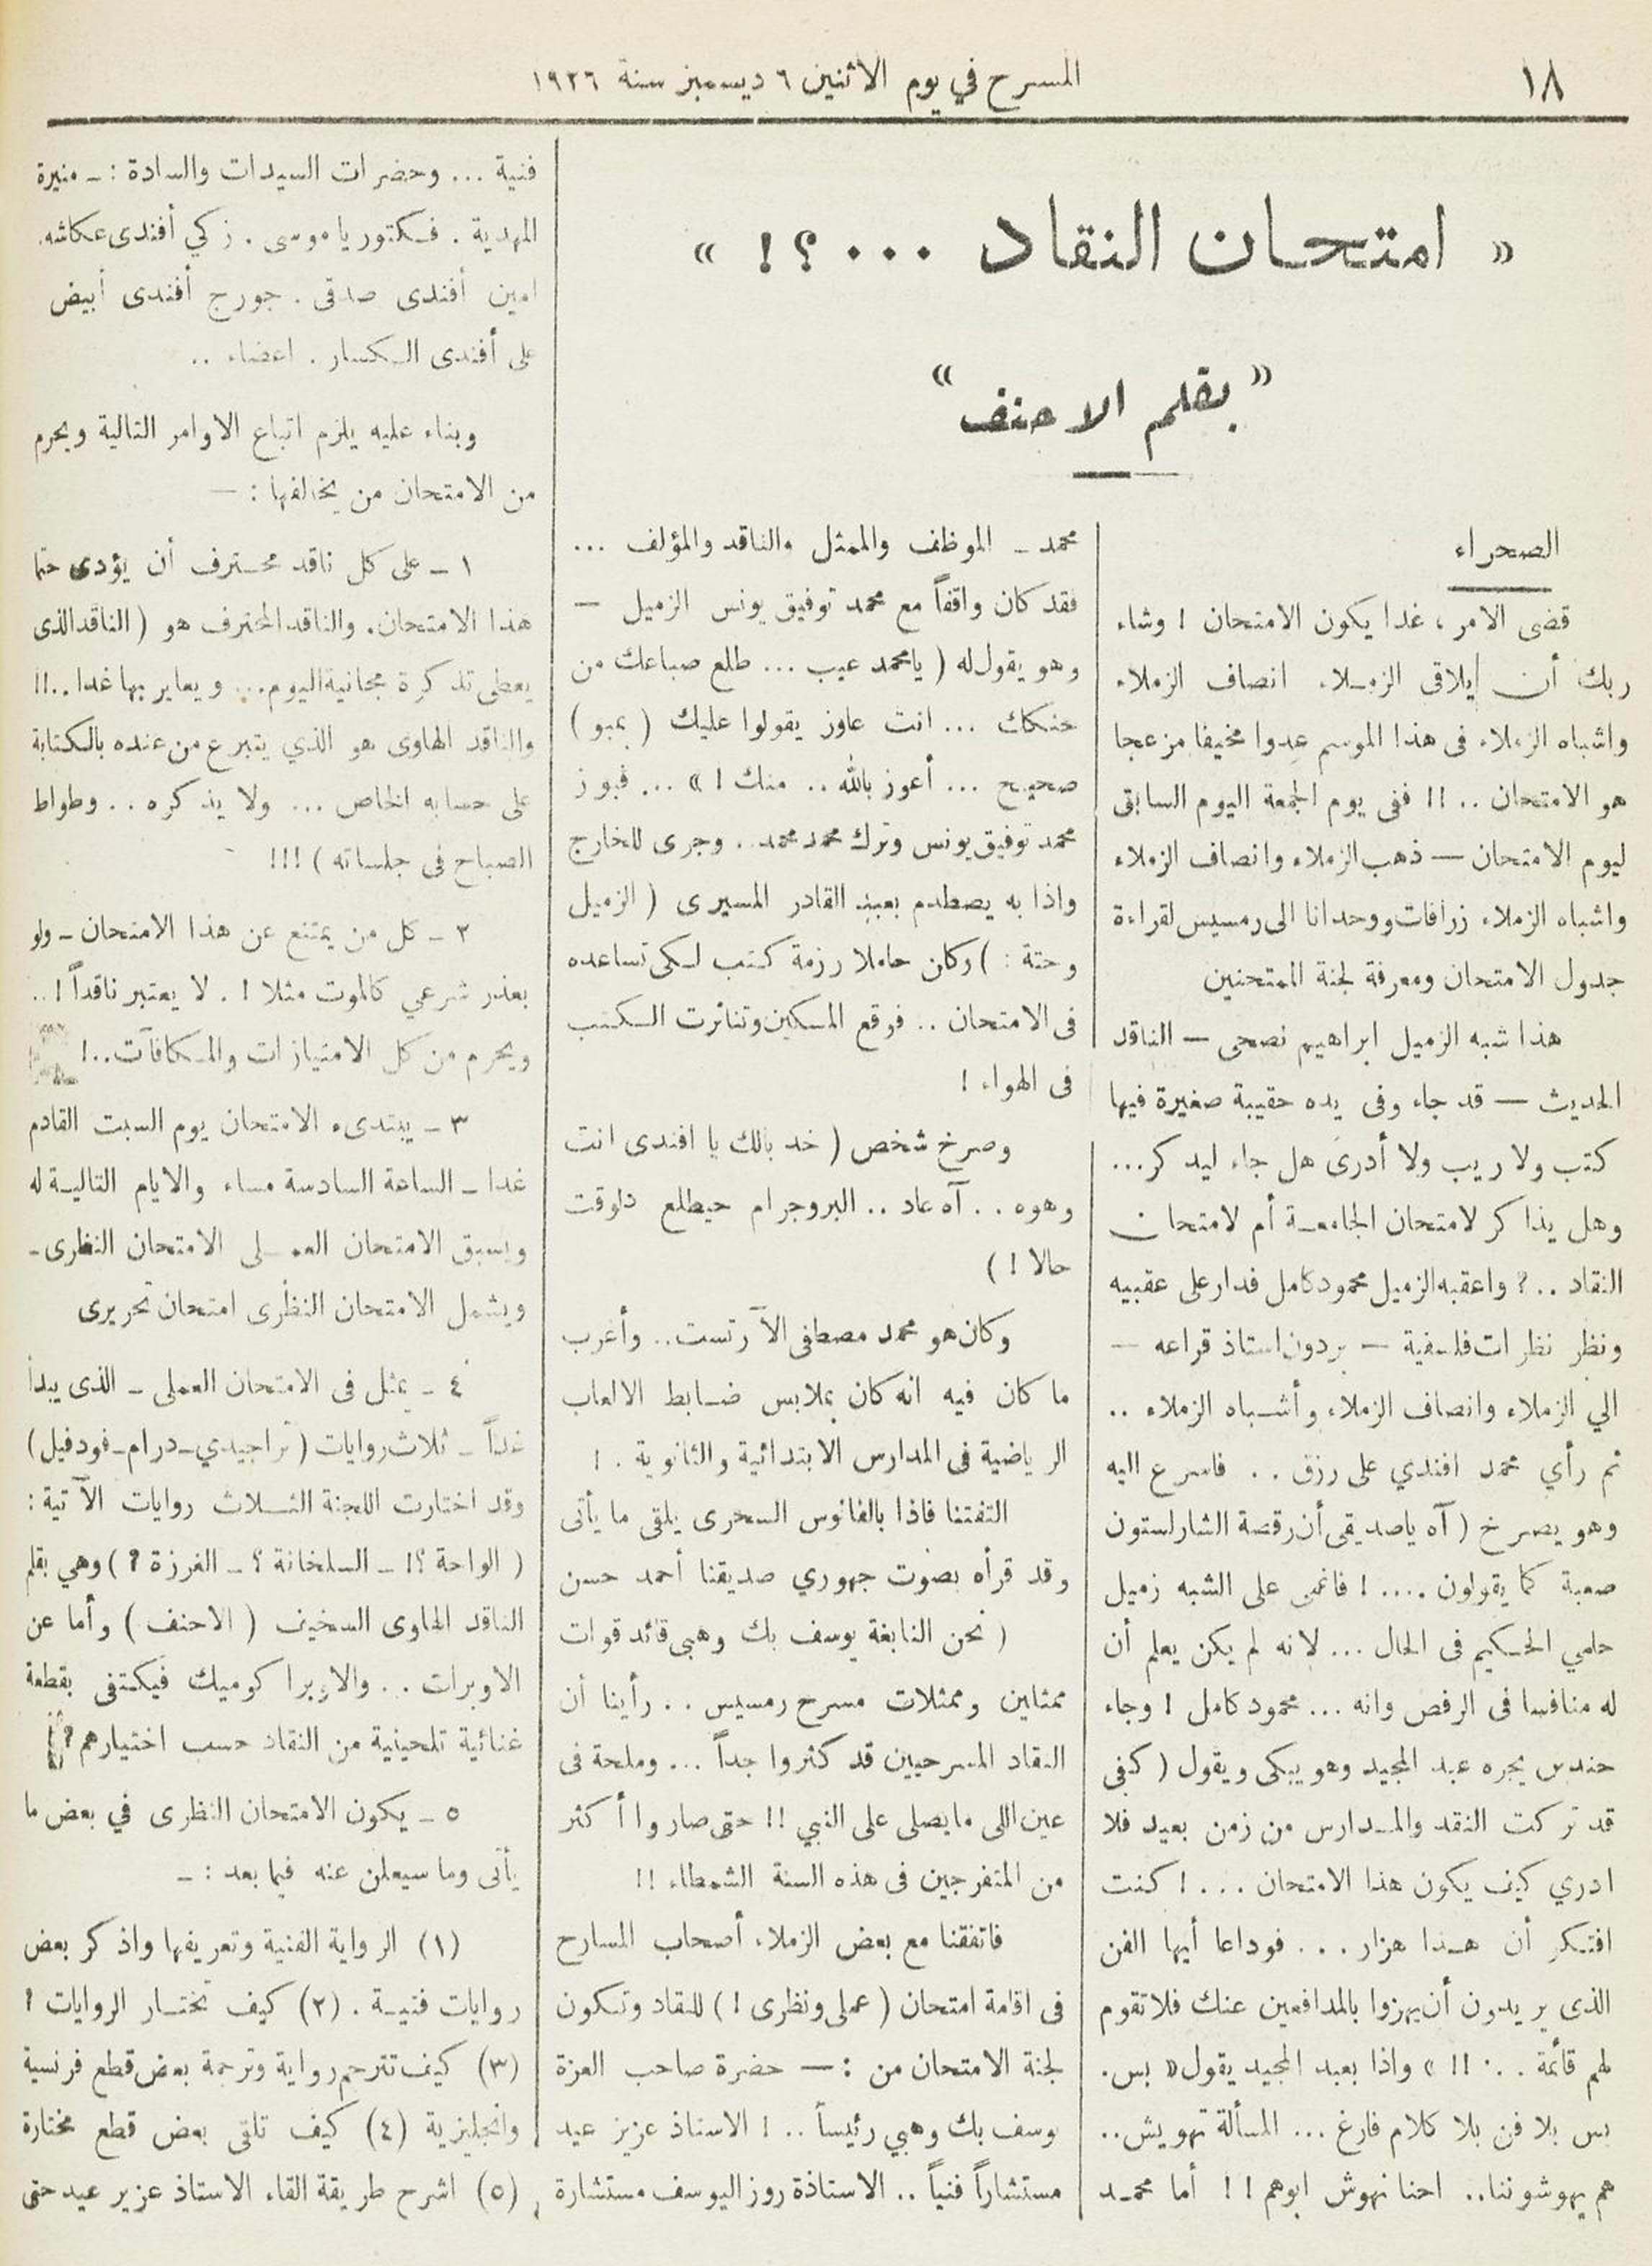 ١٨
المسرح في يوم الاثنين ٦ ديسمبر سنة ١٩٢٦
« امتحان النقاد ...؟! »
« بقلم الاحنف »
الصحراء
قضى الامر ، غدا يكون الامتحان ! وشاء
ربك أن يلاقى الزملاء انصاف الزملاء
واشباه الزملاء فى هذا الموسم عدوا مخيفا مزعجا
هو الامتحان .. !! ففى يوم الجمعة اليوم السابق
ليوم الامتحان — ذهب الزملاء وانصاف الزملاء
واشباه الزملاء زرافات ووحدانا الى رمسيس لقراءة
جدول الامتحان ومعرفة لجنة الممتحنين
هذا شبه الزميل ابراهيم نصحى — الناقد
الحديث — قد جاء وفى يده حقيبة صغيرة فيها
كتب ولا ريب ولا أدرى هل جاء ليذكر...
وهل يذاكر لامتحان الجامعة أم لامتحان
النقاد ..؟ واعقبه الزميل محمود كامل فدار على عقبيه
ونظر نظرات فلسفية — بردون استاذ قراعه —
الي الزملاء وانصاف الزملاء وأشباه الزملاء ..
ثم رأي محمد افندي على رزق .. فاسرع اليه
وهو يصرخ ( آه ياصديقى أن رقصة الشارلستون
صعبة كما يقولون .... ! فاغمى على الشبه زميل
حامي الحكيم فى الحال ... لانه لم يكن يعلم أن
له منافسا فى الرقص وانه ... محمود كامل ! وجاء
حندس يجره عبد المجيد وهو يبكى ويقول ( كفى
قد تركت النقد والمدارس من زمن بعيد فلا
ادري كيف يكون هذا الامتحان ... ! كنت
افتكر أن هذا هزار ... فوداعا أيها الفن
الذى يريدون أن يهزوا بالمدافعين عنك فلا تقوم
لهم قائمة ... !! » واذا بعبد المجيد يقول « بس.
بس بلا فن بلا كلام فارغ ... المسألة تهويش..
هم يهوشوننا.. احنا نهوش ابوهم !! أما محمد
محمد ـ الموظف والممثل والناقد والمؤلف ...
فقد كان واقفاً مع محمد توفيق يونس الزميل —
وهو يقول له ( يامحمد عيب ... طلع صباعك من
حنكك ... انت عاوز يقولوا عليك ( بمبو )
صحيح ... أعوز بالله .. منك ! » ... فبوز
محمد توفيق يونس وترك محمد محمد .. وجرى للخارج
واذا به يصطدم بعبد القادر المسيرى ( الزميل
وحتة : ) وكان حاملا رزمة كتب لكى تساعده
فى الامتحان .. فوقع المسكين وتناثرت الكتب
فى الهواء !
وصرخ شخص ( خد بالك يا افندى انت
وهوه .. آه عاد .. البروجرام حيطلع دلوقت
حالا ! )
وكان هو محمد مصطفى الآرتست .. وأغرب
ما كان فيه انه كان بملابس ضابط الالعاب
الرياضية فى المدارس الابتدائية والثانوية . !
التفتنا فاذا بالفانوس السحرى يلقى ما يأتى
وقد قرأه بصوت جهوري صديقنا أحمد حسن
( نحن النابغة يوسف بك وهبى قائد قوات
ممثلين وممثلات مسرح رمسيس .. رأينا أن
النقاد المسرحيين قد كثروا جداً ... وملحة فى
عين اللى ما يصلى على النبي !! حتى صاروا أكثر
من المتفرجين فى هذه السنة الشمطاء !!
فاتفقنا مع بعض الزملاء أصحاب المسارح
فى اقامة امتحان ( عملى ونظرى ! ) للنقاد وتكون
لجنة الامتحان من : — حضرة صاحب العزة
يوسف بك وهبي رئيساً .. ! الاستاذ عزيز عيد
مستشاراً فنياً .. الاستاذة روز اليوسف مستشارة
فنية ... وحضرات السيدات والسادة : ـ منيرة
المهدية . فكتوريا موسى . زكي أفندى عكاشه.
امين أفندى صدقى . جورج أفندى أبيض
على أفندى الكسار . اعضاء ..
وبناء عليه يلزم اتباع الاوامر التالية ويحرم
من الامتحان من يخالفها : —
١ ـ على كل ناقد محترف أن يؤدى حتما
هذا الامتحان. والناقد المحترف هو ( الناقد الذى
يعطى تذكرة مجانية اليوم... ويعاير بها غدا ..!!
والناقد الهاوى هو الذي يتبرع من عنده بالكتابة
على حسابه الخاص ... ولا يذكره .. وطواط
الصباح فى جلساته ) !!!
٢ ـ كل من يمتنع عن هذا الامتحان ـ ولو
بعذر شرعي كالموت مثلا ! . لا يعتبر ناقداً ! ..
ويحرم من كل الامتيازات والمكافآت..!
٣ ـ يبتدىء الامتحان يوم السبت القادم
غدا ـ الساعة السادسة مساء والايام التالية له
ويسبق الامتحان العملى الامتحان النظرى ـ
ويشمل الامتحان النظرى امتحان تحريرى
٤ ـ يمثل فى الامتحان العملى ـ الذى يبدأ
غداً ـ ثلاث روايات ( تراجيدي ـ درام ـ فودفيل )
وقد اختارت اللجنة الثلاث روايات الآتية :
( الواحة ؟! ـ السلخانة ؟ ـ الغرزة ؟ ) وهي بقلم
الناقد الهاوى السخيف ( الاحنف ) وأما عن
الاوبرات .. والاوبرا كوميك فيكتفى بقطعة
غنائية تلحينية من النقاد حسب اختيارهم ؟
٥ ـ يكون الامتحان النظرى في بعض ما
يأتى وما سيعلن عنه فيما بعد : ـ
(١) الرواية الفنية وتعريفها واذكر بعض
روايات فنية . (٢) كيف تختار الروايات ؟
(٣) كيف تترجم رواية وترجمة بعض قطع فرنسية
وانجليزية (٤) كيف تلقى بعض قطع مختارة
(٥) اشرح طريقة القاء الاستاذ عزيز عيد حتى